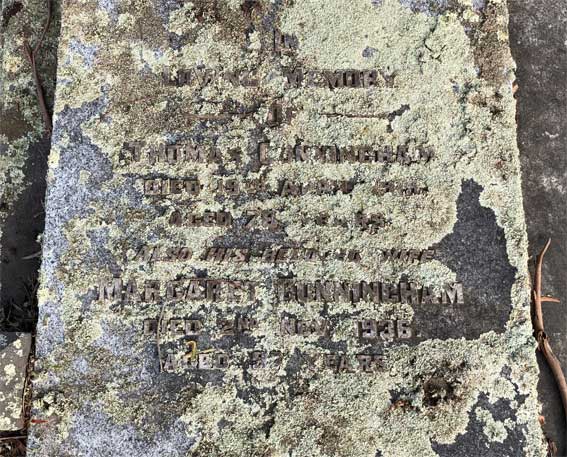 IN
LOVING MEMORY
OF
THOMAS CUNNINGHAM
DIED
AGED 78 YEARS
ALSO HIS BELOVED WIFE
MARGARET CUNNINGHAM
DIED 2ND NOV. 1936
AGED YEARS